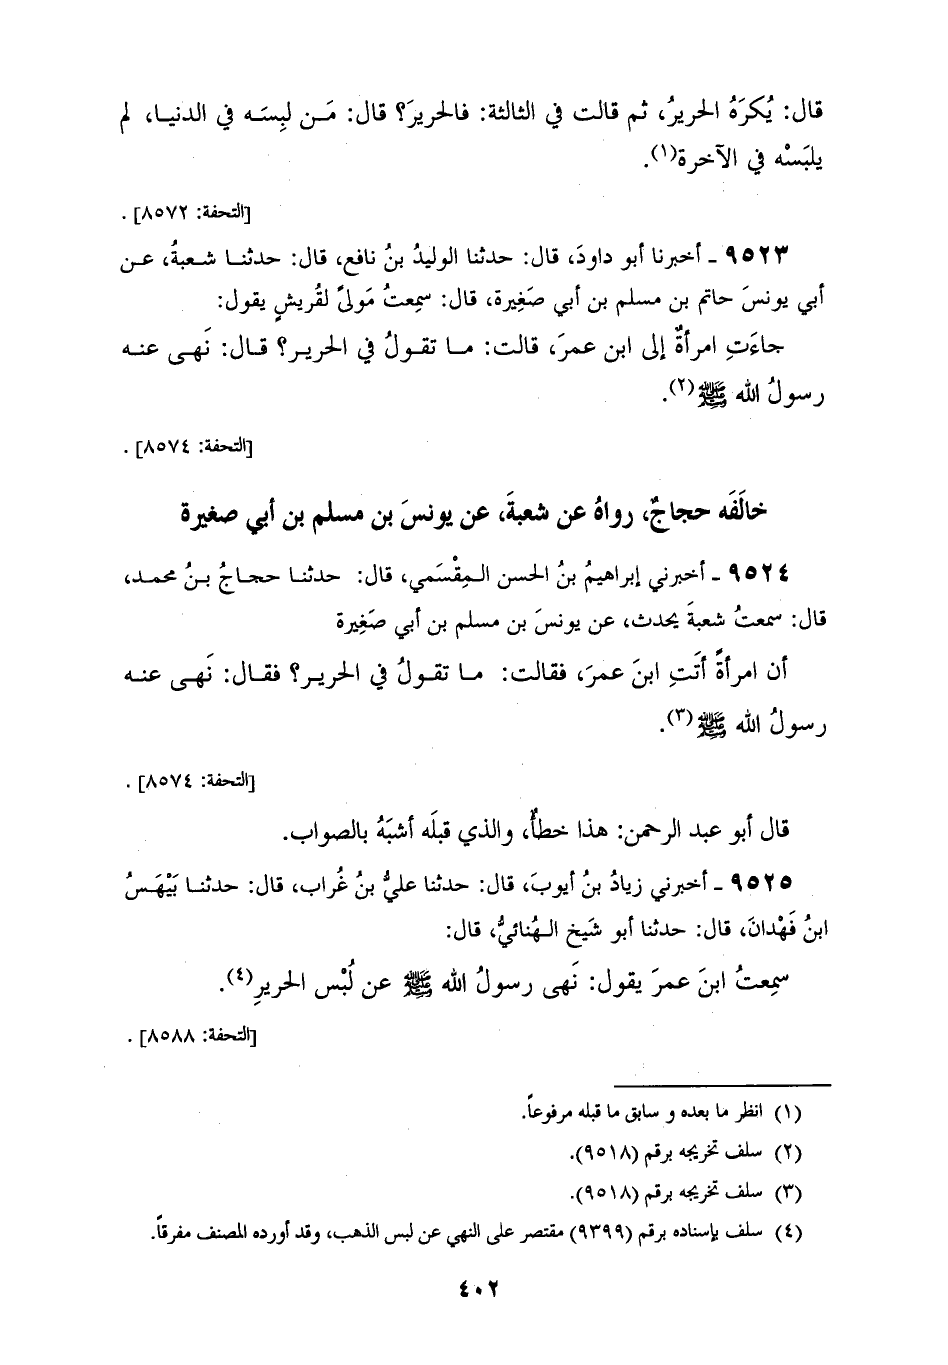 قال: يُكرَهُ الحريرُ، ثم قالت في الثالثة: فالحريرَ؟ قال: مَن لبِسَه في الدنيا، لم
يلبَسْه في الآخرة(١).
[التحفة: ٨٥٧٢] .
٩٥٢٣ ـ أخبرنا أبو داودَ، قال: حدثنا الوليدُ بنُ نافع، قال: حدثنا شعبةُ، عن
أبي يونسَ حاتم بن مسلم بن أبي صَغِيرة، قال: سمِعتُ مَولىً لقُريشٍ يقول:
جاءَتِ امرأةٌ إلى ابن عمرَ، قالت: ما تقولُ في الحرير؟ قال: نَهى عنه
رسولُ الله ﷺ(٢).
[التحفة: ٨٥٧٤] .
خالَفَه حجاجٌ، رواهُ عن شعبةَ، عن يونسَ بن مسلم بن أبي صغيرة
٩٥٢٤ ـ أخبرني إبراهيمُ بنُ الحسن المِقْسَمي، قال: حدثنا حجاجُ بنُ محمد،
قال: سمعتُ شعبةَ يحدث، عن يونسَ بن مسلم بن أبي صَغِيرة
أن امرأةً أتَتِ ابنَ عمرَ، فقالت: ما تقولُ في الحرير؟ فقال: نَهى عنه
رسولُ الله ﷺ(٣).
[التحفة: ٨٥٧٤] .
قال أبو عبد الرحمن: هذا خطأٌ، والذي قبلَه أشبَهُ بالصواب.
٩٥٢٥ ـ أخبرني زيادُ بنُ أيوبَ، قال: حدثنا عليُّ بنُ غُراب، قال: حدثنا بَيْهَسُ
ابنُ فَهْدانَ، قال: حدثنا أبو شَيخ الهُنائيُّ، قال:
سمِعتُ ابنَ عمرَ يقول: نَهى رسولُ الله ﷺ عن لُبْس الحريرِ(٤).
[التحفة: ٨٥٨٨] .
(١) انظر ما بعده و سابق ما قبله مرفوعاً.
(٢) سلف تخريجه برقم (٩٥١٨).
(٣) سلف تخريجه برقم (٩٥١٨).
(٤) سلف بإسناده برقم (٩٣٩٩) مقتصر على النهي عن لبس الذهب، وقد أورده المصنف مفرقاً.
٤٠٢